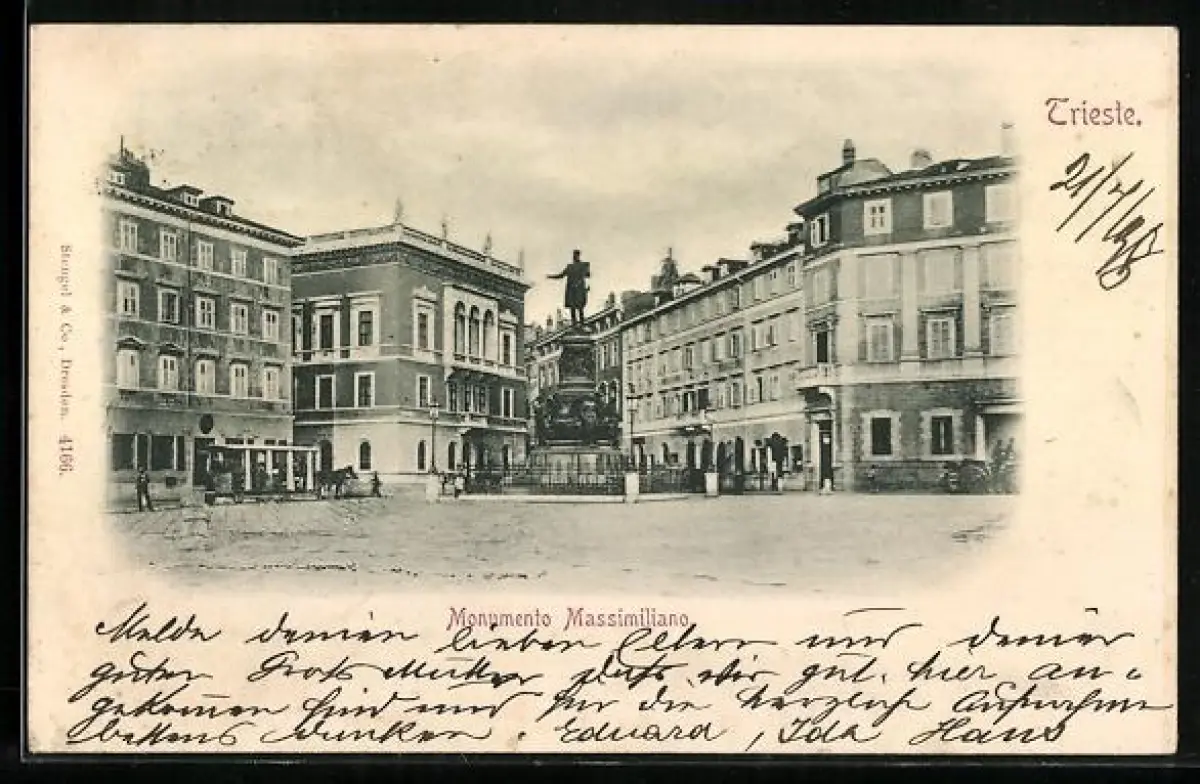 Trieste.
21/7/98
Stengel & Co., Dresden. 4166.
Monumento Massimiliano.
Melde deinen lieben Eltern und deiner
guten Großmutter daß wir gut hier an-
gekommen sind und für die herzliche Aufnahme
bestens danken. Eduard, Ida Hans